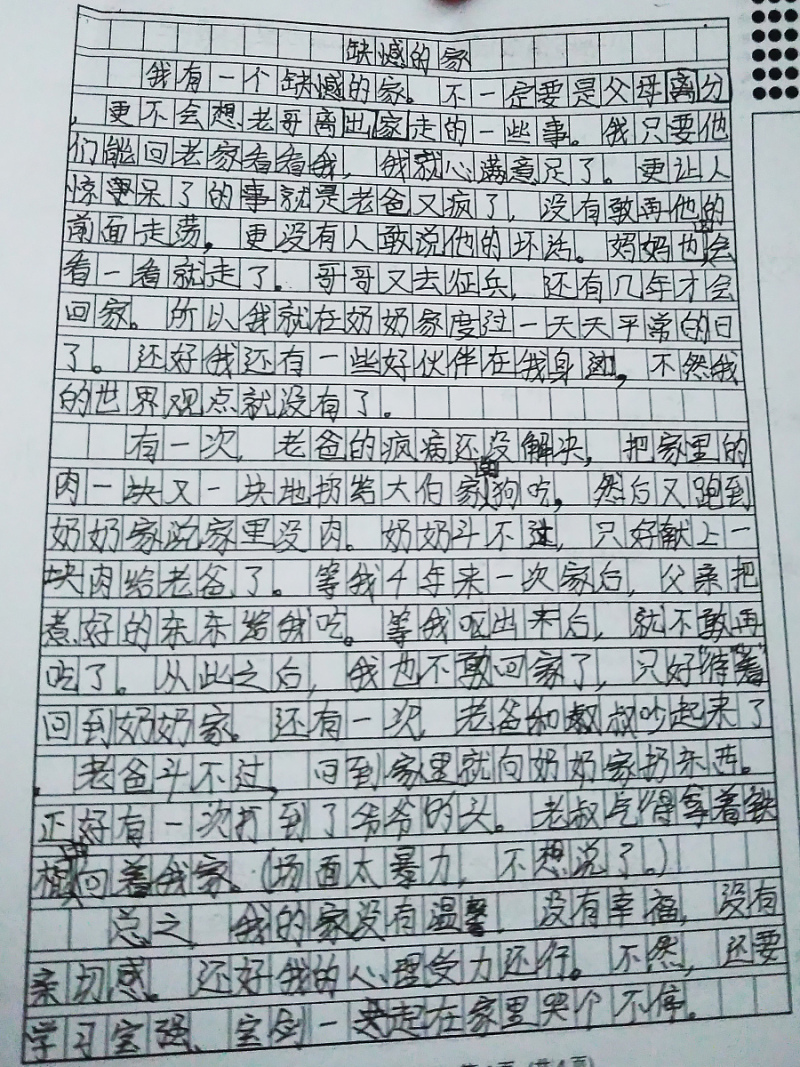 缺憾的家
我有一个缺憾的家。不一定要是父母离分
，更不会想老哥离出家走的一些事。我只要他
们能回老家看看我，我就心满意足了。更让人
惊呆了的事就是老爸又疯了，没有敢再他的
前面走荡，更没有人敢说他的坏话。妈妈也会
看一看就走了。哥哥又去征兵，还有几年才会
回家。所以我就在奶奶家度过一天天平常的日
了。还好我还有一些好伙伴在我身边，不然我
的世界观点就没有了。
有一次，老爸的疯病还没解决，把家里的
肉一块又一块地扔给大伯家的狗吃，然后又跑到
奶奶家说家里没肉。奶奶斗不过，只好献上一
块肉给老爸了。等我4年来一次家后，父亲把
煮好的东东给我吃。等我呕出来后，就不敢再
吃了。从此之后，我也不敢回家了，只好“待着”
回到奶奶家。还有一次，老爸和叔叔吵起来了
，老爸斗不过，回到家里就向奶奶家扔东西。
正好有一次打到了爷爷的头。老叔气得拿着铁
回着我家。(场面太暴力，不想说了。)
总之，我的家没有温馨，没有幸福，没有
亲切感。还好我的心理受力还行。不然，还要
学习宝强、宝剑一起在家里哭个不停。